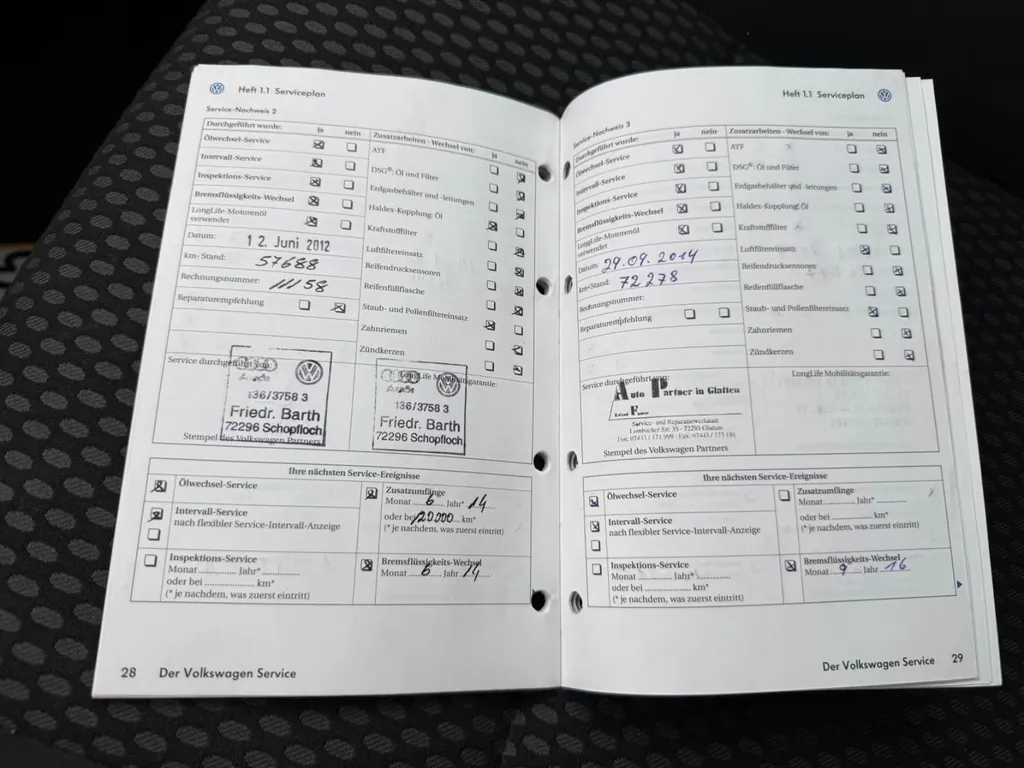 Heft 1.1 Serviceplan
Service-Nachweis 2
Durchgeführt wurde: ja nein
Ölwechsel-Service
Intervall-Service
Inspektions-Service
Bremsflüssigkeits-Wechsel
LongLife-Motorenöl
verwendet
Datum: 12. Juni 2012
km-Stand: 57688
Rechnungsnummer: 11158
Reparaturempfehlung
Zusatzarbeiten - Wechsel von: ja nein
ATF
DSG®: Öl und Filter
Erdgasbehälter und -leitungen
Haldex-Kupplung: Öl
Kraftstofffilter
Luftfiltereinsatz
Reifendrucksensoren
Reifenfüllflasche
Staub- und Pollenfiltereinsatz
Zahnriemen
Zündkerzen
Service durchgeführt von:
136/3758 3
Friedr. Barth
72296 Schopfloch
Stempel des Volkswagen Partners
LongLife Mobilitätsgarantie:
136/3758 3
Friedr. Barth
72296 Schopfloch
Ihre nächsten Service-Ereignisse
Ölwechsel-Service
Intervall-Service
nach flexibler Service-Intervall-Anzeige
Inspektions-Service
Monat ............... Jahr* ...............
oder bei ............... km*
(* je nachdem, was zuerst eintritt)
Zusatzumfänge
Monat 6 Jahr* 14
oder bei 120000 km*
(* je nachdem, was zuerst eintritt)
Bremsflüssigkeits-Wechsel
Monat 6 Jahr 14
28 Der Volkswagen Service
Heft 1.1 Serviceplan
Service-Nachweis 3
Durchgeführt wurde: ja nein
Ölwechsel-Service
Intervall-Service
Inspektions-Service
Bremsflüssigkeits-Wechsel
LongLife-Motorenöl
verwendet
Datum: 29.09.2014
km-Stand: 72278
Rechnungsnummer:
Reparaturempfehlung
Zusatzarbeiten - Wechsel von: ja nein
ATF
DSG®: Öl und Filter
Erdgasbehälter und -leitungen
Haldex-Kupplung: Öl
Kraftstofffilter
Luftfiltereinsatz
Reifendrucksensoren
Reifenfüllflasche
Staub- und Pollenfiltereinsatz
Zahnriemen
Zündkerzen
Service durchgeführt von:
Auto Partner in Glatten
Service- und Reparaturwerkstatt
Stempel des Volkswagen Partners
LongLife Mobilitätsgarantie:
Ihre nächsten Service-Ereignisse
Ölwechsel-Service
Intervall-Service
nach flexibler Service-Intervall-Anzeige
Inspektions-Service
Monat ............... Jahr* ...............
oder bei ............... km*
(* je nachdem, was zuerst eintritt)
Zusatzumfänge
Monat ............... Jahr* ...............
oder bei ............... km*
(* je nachdem, was zuerst eintritt)
Bremsflüssigkeits-Wechsel
Monat 9 Jahr 16
Der Volkswagen Service 29